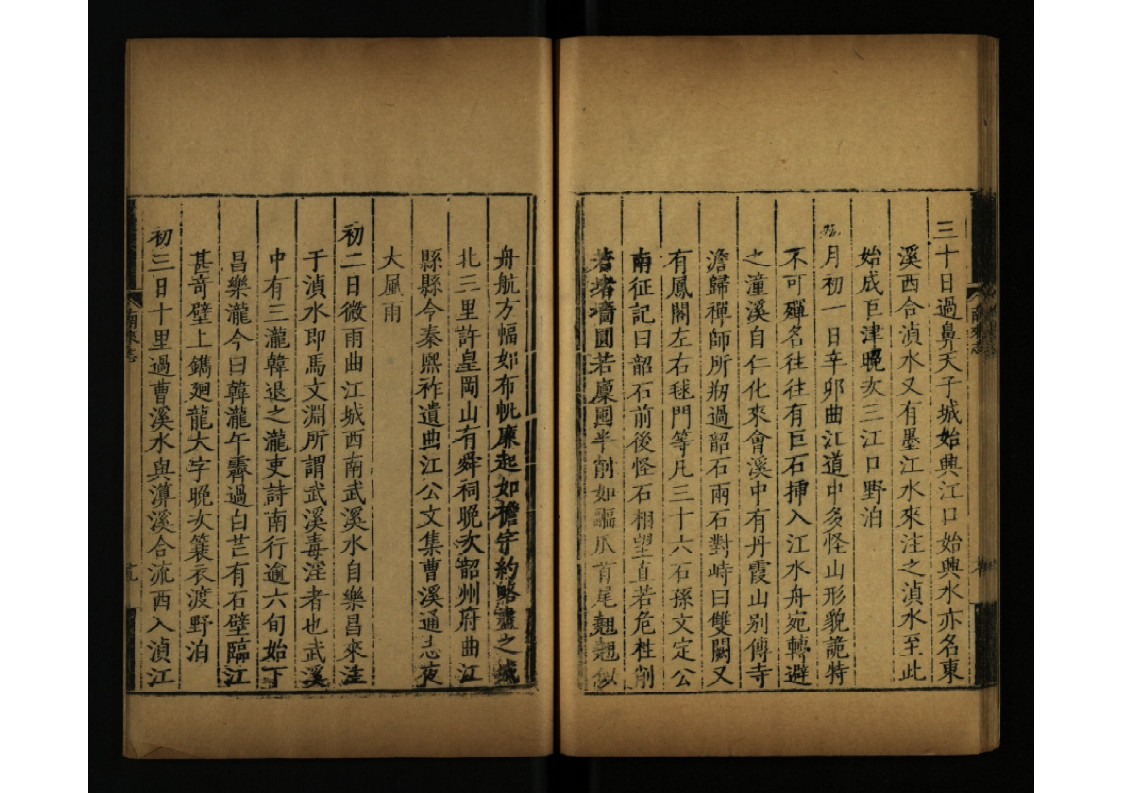 三十日過鼻天子城始興江口始興水亦名東
溪西合湞水又有墨江水來注之湞水至此
始成巨津晚次三江口野泊
月初一日辛卯曲江道中多怪山形貌詭特
不可殫名往往有巨石揷入江水舟宛轉避
之潼溪自仁化來會溪中有丹霞山别傳寺
澹歸禪師所剏過韶石兩石對峙曰雙闕又
有鳳閣左右毬門等凡三十六石孫文定公
南征記曰韶石前後怪石相望直若危柱削
若堵墻圓若廩囷半削如瓜首尾翹翹似
舟航方幅如布帆廉起如檐宇約略盡之城
北三里許皇岡山有舜祠晚次韶州府曲江
縣縣令秦熙祚遺曲江公文集曹溪通志夜
大風雨
初二日微雨曲江城西南武溪水自樂昌來注
于湞水即馬文淵所謂武溪毒淫者也武溪
中有三瀧韓退之瀧吏詩南行逾六旬始下
昌樂瀧今曰韓瀧午霽過白芒有石壁臨江
甚奇壁上鐫廻龍大字晚次簑衣渡野泊
初三日十里過曹溪水與溪合流西入湞江
南來志